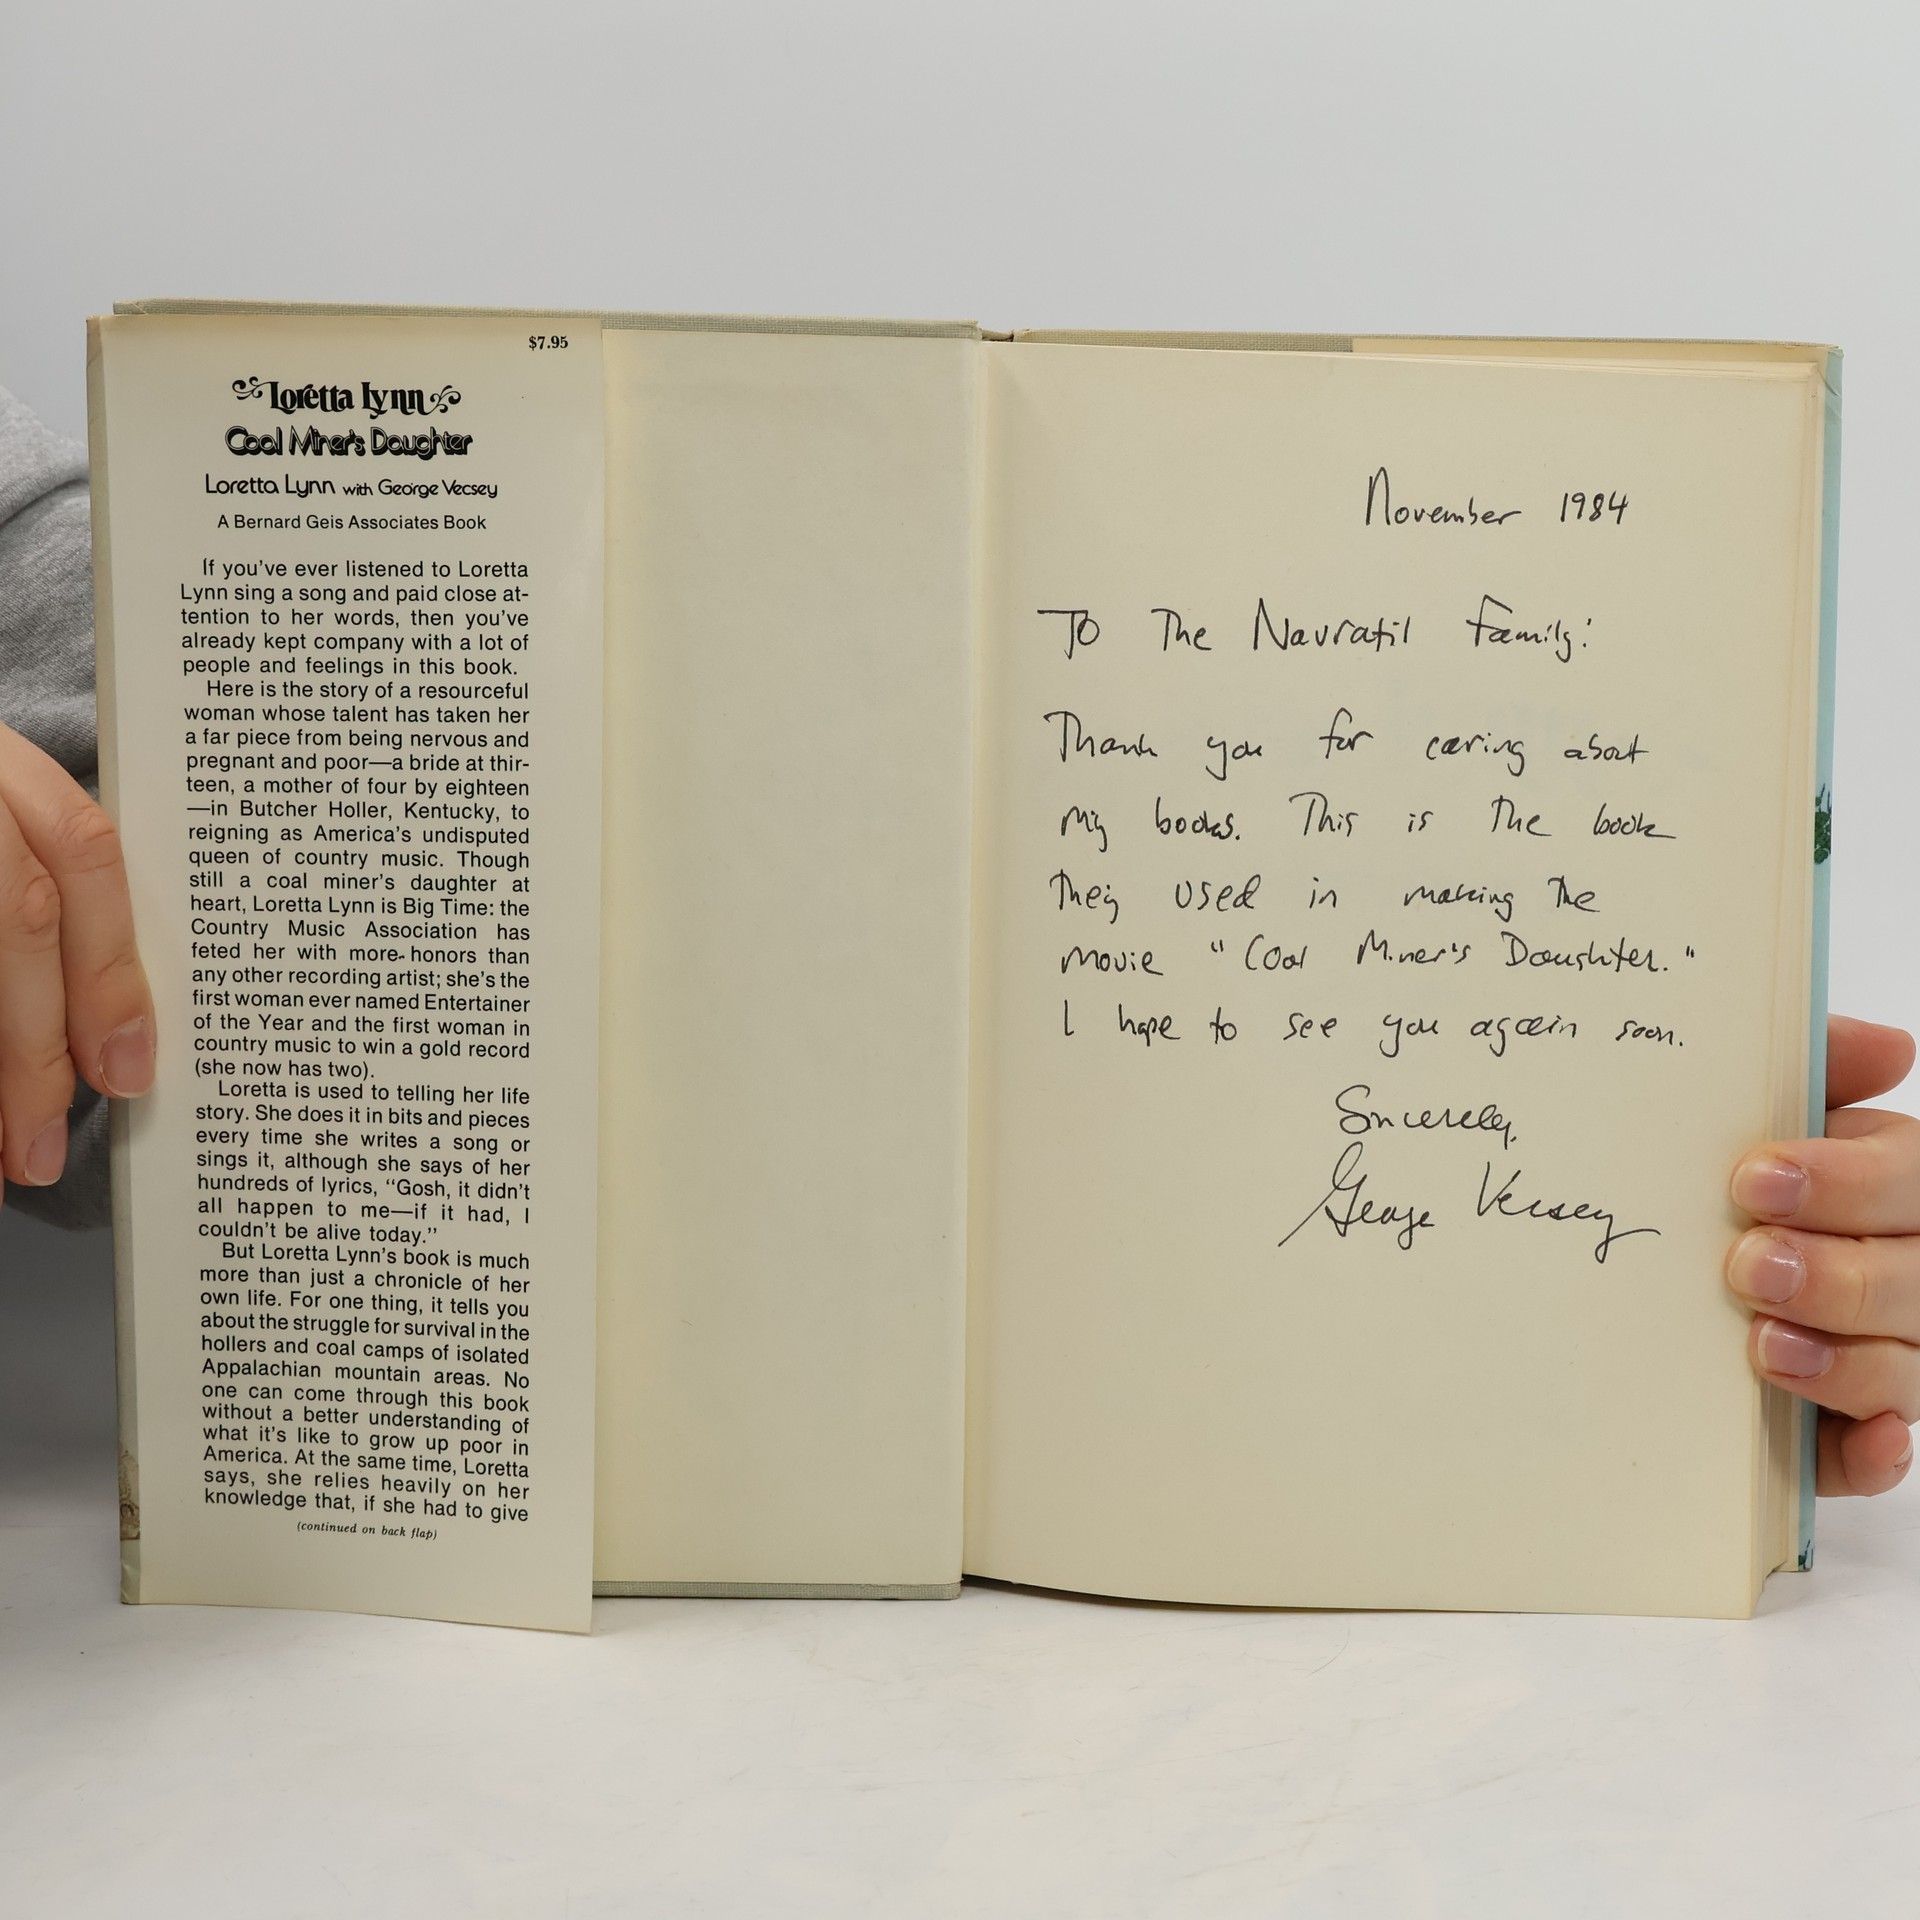 $7.95
Loretta Lynn
Coal Miner's Daughter
Loretta Lynn with George Vecsey
A Bernard Geis Associates Book
If you've ever listened to Loretta
Lynn sing a song and paid close at-
tention to her words, then you've
already kept company with a lot of
people and feelings in this book.
Here is the story of a resourceful
woman whose talent has taken her
a far piece from being nervous and
pregnant and poor—a bride at thir-
teen, a mother of four by eighteen
—in Butcher Holler, Kentucky, to
reigning as America's undisputed
queen of country music. Though
still a coal miner's daughter at
heart, Loretta Lynn is Big Time: the
Country Music Association has
feted her with more honors than
any other recording artist; she's the
first woman ever named Entertainer
of the Year and the first woman in
country music to win a gold record
(she now has two).
Loretta is used to telling her life
story. She does it in bits and pieces
every time she writes a song or
sings it, although she says of her
hundreds of lyrics, "Gosh, it didn't
all happen to me—if it had, I
couldn't be alive today."
But Loretta Lynn's book is much
more than just a chronicle of her
own life. For one thing, it tells you
about the struggle for survival in the
hollers and coal camps of isolated
Appalachian mountain areas. No
one can come through this book
without a better understanding of
what it's like to grow up poor in
America. At the same time, Loretta
says, she relies heavily on her
knowledge that, if she had to give
(continued on back flap)
November 1984
To The Navratil Family:
Thank you for caring about
my books. This is the book
they used in making the
movie "Coal Miner's Daughter."
I hope to see you again soon.
Sincerely,
George Vecsey